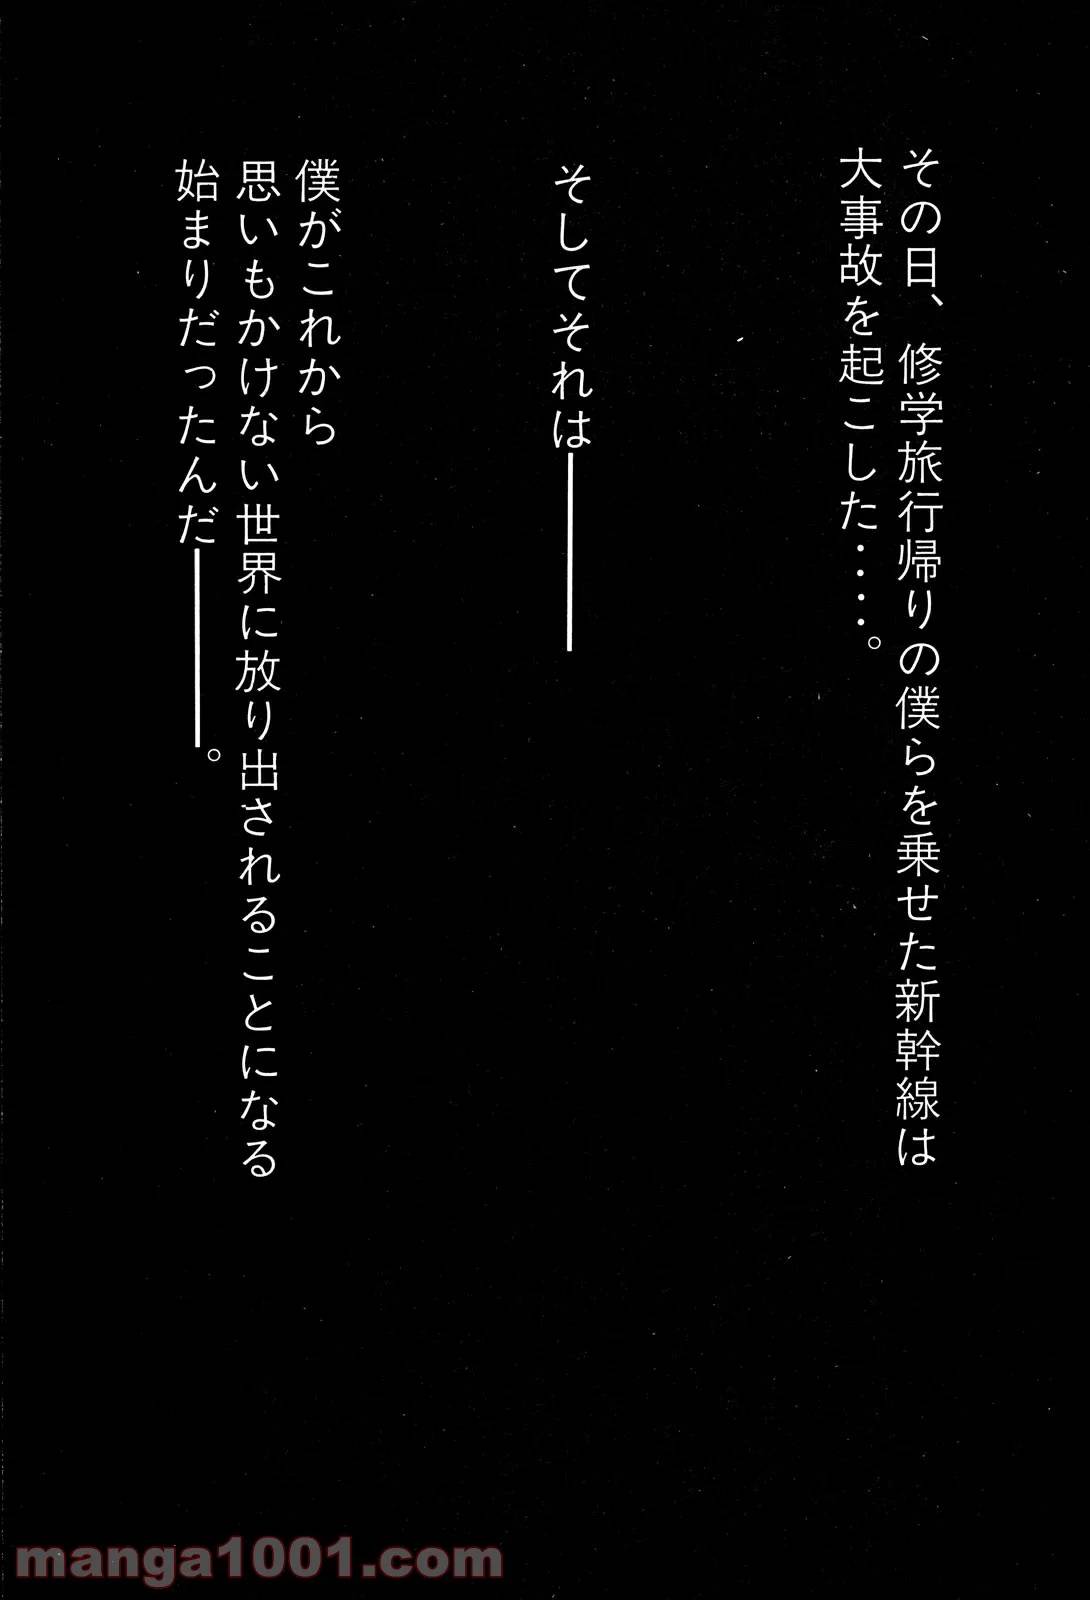 その日、修学旅行帰りの僕らを乗せた新幹線は
大事故を起こした……。
そしてそれは――――
僕がこれから
思いもかけない世界に放り出されることになる
始まりだったんだ――――。
manga1001.com